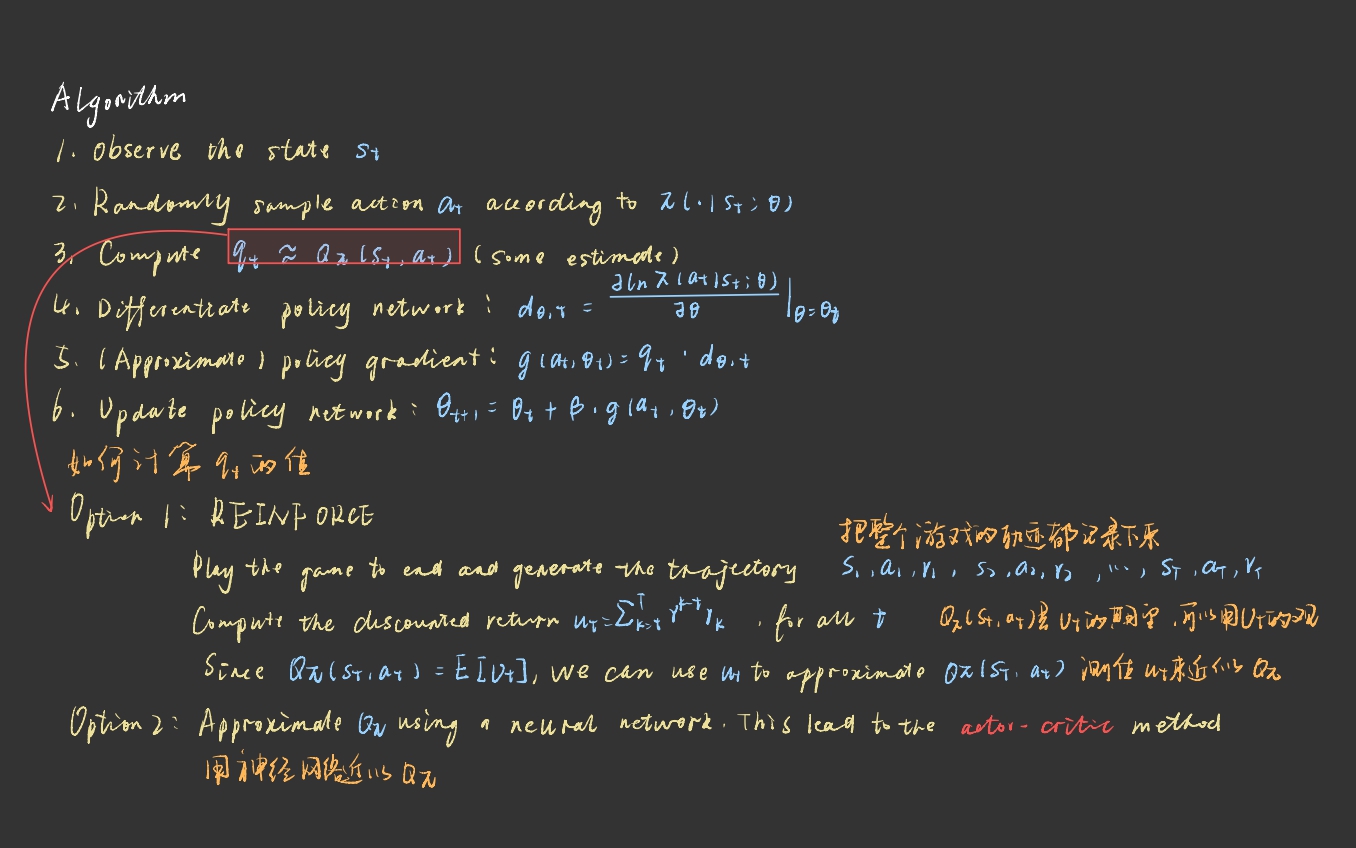 Algorithm
1. Observe the state s_t
2. Randomly sample action a_t according to π(·|s_t; θ)
3. Compute q_t ≈ Q_π(s_t, a_t) (some estimate)
4. Differentiate policy network: d_θ,t = ∂ln π(a_t|s_t; θ) / ∂θ |_θ=θ_t
5. (Approximate) policy gradient: g(a_t, θ_t) = q_t · d_θ,t
6. Update policy network: θ_t+1 = θ_t + β · g(a_t, θ_t)
如何计算 q_t 的值
Option 1: REINFORCE
把整个游戏的轨迹都记录下来
Play the game to end and generate the trajectory s_1, a_1, r_1, s_2, a_2, r_2, ..., s_T, a_T, r_T
Compute the discounted return u_t = Σ_{k=t}^{T} γ^{k-t} r_k, for all t Q_π(s_t, a_t)是 U_t 的期望,可以用U_t的观
Since Q_π(s_t, a_t) = E[U_t], we can use u_t to approximate Q_π(s_t, a_t) 测值 u_t来近似 Q_π
Option 2: Approximate Q_π using a neural network. This lead to the actor-critic method
用神经网络近似 Q_π